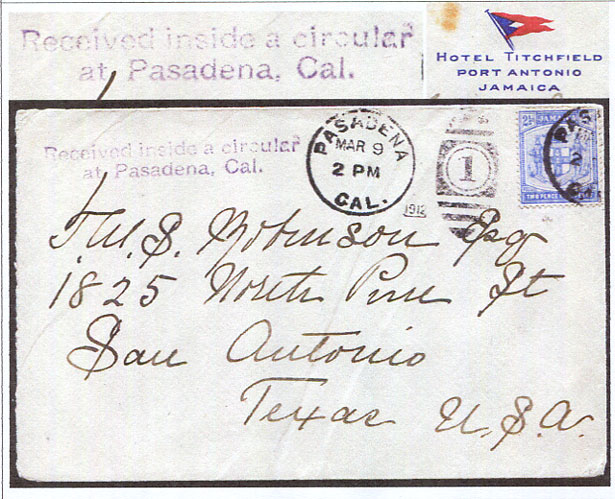 Received inside a circular
at Pasadena, Cal.
HOTEL TITCHFIELD
PORT ANTONIO
JAMAICA
Received inside a circular
at Pasadena, Cal.
PASADENA
MAR 9
2 PM
CAL.
1912
1
2½ JAMAI
TWO PENCE
PAS
2
CA
J. W. S. Robinson Esq
1825 North Pine St
San Antonio
Texas U.S.A.